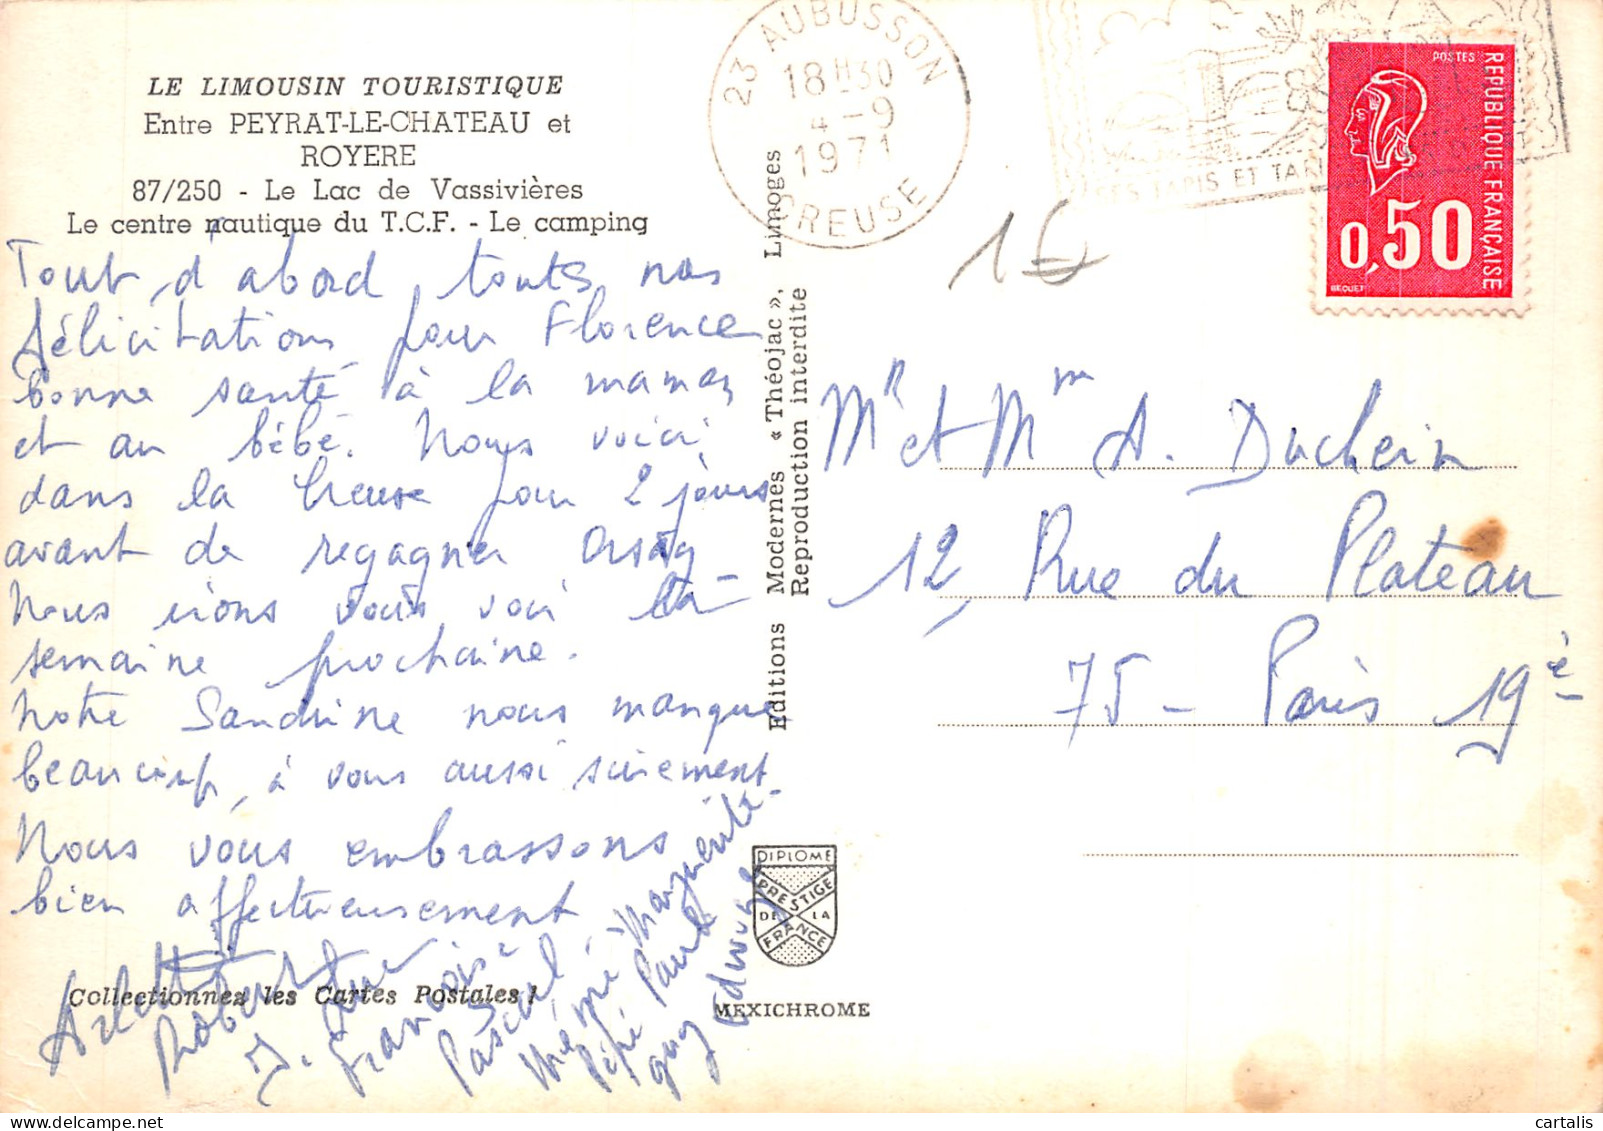 LE LIMOUSIN TOURISTIQUE
Entre PEYRAT-LE-CHATEAU et
ROYERE
87/250 - Le Lac de Vassivières
Le centre nautique du T.C.F. - Le camping
Tout d'abord toutes nos
félicitations pour Florence
bonne santé à la maman
et au bébé. Nous voici
dans la Creuse pour 2 jours
avant de regagner Orsay
Nous irons vous voir la
semaine prochaine.
Notre Sandrine nous manque
beaucoup, à vous aussi sûrement
Nous vous embrassons
bien affectueusement
Arlette
Robert
J.
Françoise
Pascal
Mémé Marguerite
Pépé Paul
Guy Edwige
Collectionnez les Cartes Postales !
Editions Modernes « Théojac », Limoges
Reproduction interdite
DIPLOME
PRESTIGE
DE LA
FRANCE
MEXICHROME
23 AUBUSSON
18H30
4-9
1971
CREUSE
TAPIS ET
POSTES
REPUBLIQUE FRANÇAISE
0,50
BEQUET
1€
Mr et Mm A. Duchein
12, Rue du Plateau
75 - Paris 19è
cartalis